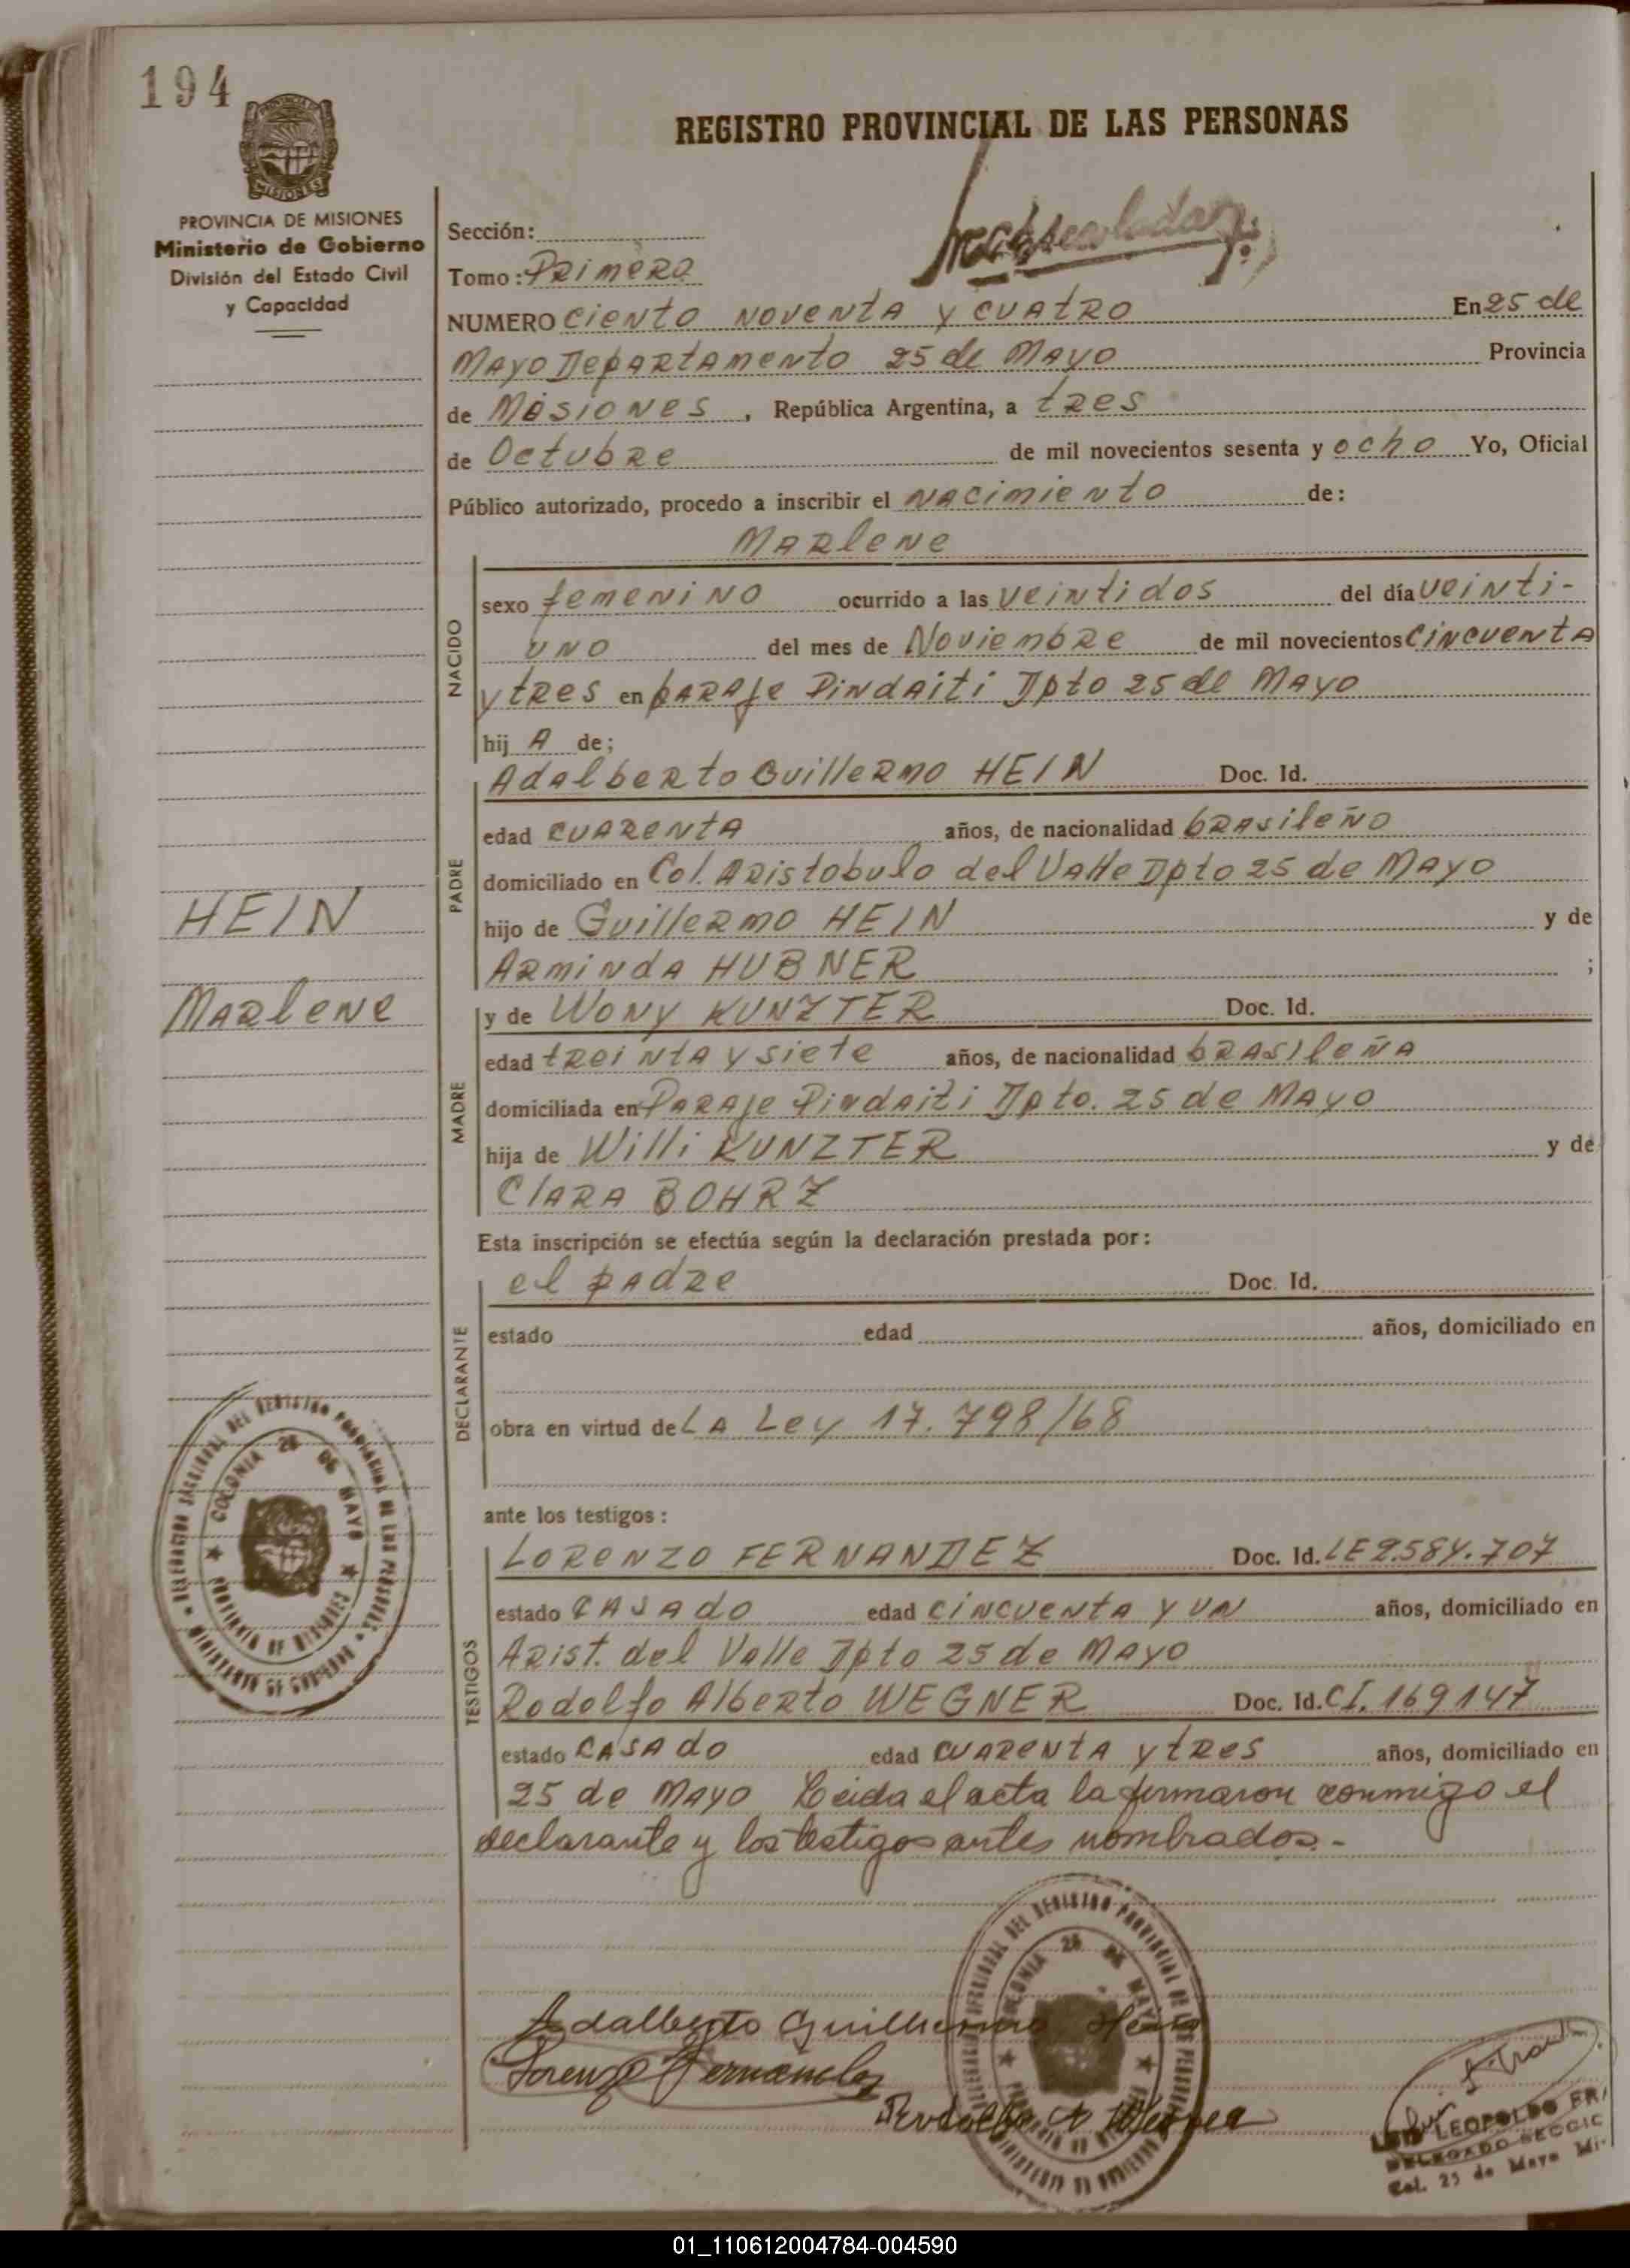 194
REGISTRO PROVINCIAL DE LAS PERSONAS
PROVINCIA DE MISIONES
Ministerio de Gobierno
División del Estado Civil
y Capacidad
Sección:
Tomo: Primero
NUMERO ciento noventa y cuatro En 25 de
Mayo Departamento 25 de Mayo Provincia
de Misiones, República Argentina, a tres
de Octubre de mil novecientos sesenta y ocho Yo, Oficial
Público autorizado, procedo a inscribir el nacimiento de:
Marlene
NACIDO
sexo femenino ocurrido a las veintidos del día veinti-
uno del mes de Noviembre de mil novecientos cincuenta
y tres en paraje Pindaiti Dpto 25 de Mayo
hij A de;
PADRE
Adalberto Guillermo HEIN Doc. Id.
edad cuarenta años, de nacionalidad brasileño
domiciliado en Col. Aristobulo del Valle Dpto 25 de Mayo
hijo de Guillermo HEIN y de
Arminda HUBNER ;
HEIN
Marlene
MADRE
y de Wony KUNZTER Doc. Id.
edad treinta y siete años, de nacionalidad brasileña
domiciliada en Paraje Pindaiti Dpto. 25 de Mayo
hija de Willi KUNZTER y de
Clara BOHRZ
Esta inscripción se efectúa según la declaración prestada por:
DECLARANTE
el padre Doc. Id.
estado edad años, domiciliado en
obra en virtud de La Ley 17.798/68
ante los testigos:
TESTIGOS
Lorenzo FERNANDEZ Doc. Id. LE 2.584.707
estado casado edad cincuenta y un años, domiciliado en
Arist. del Valle Dpto 25 de Mayo
Rodolfo Alberto WEGNER Doc. Id. C.I. 169147
estado casado edad cuarenta y tres años, domiciliado en
25 de Mayo Leida el acta la firmaron conmigo el
declarante y los testigos antes nombrados.-
COLONIA 25 DE MAYO
PROVINCIA DE MISIONES
DELEGACION SECCIONAL DEL REGISTRO PROVINCIAL DE LAS PERSONAS
MINISTERIO DE GOBIERNO
COLONIA 25 DE MAYO
DELEGACION SECCIONAL DEL REGISTRO PROVINCIAL DE LAS PERSONAS
Adalberto Guilherme Hein
Lorenzo Fernandez
LUIS LEOPOLDO
DELEGADO SECCIO
Col. 25 de Mayo Mi.
01_110612004784-004590